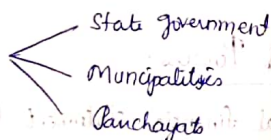 State government
Muncipalityies
Panchayats